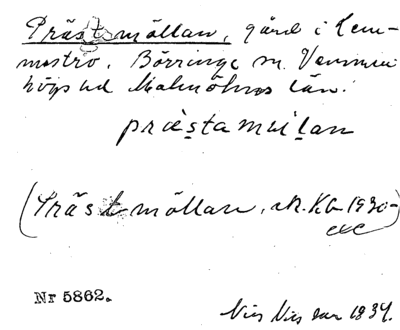 Prästmöllan, gård i Lem-
mestro, Börringe sn. Vemmen
högs hd Malmöhus län.
præstamuilan
(Prästmöllan, KB 1930-
Nr 5862.
Nils Nilsson 1934.